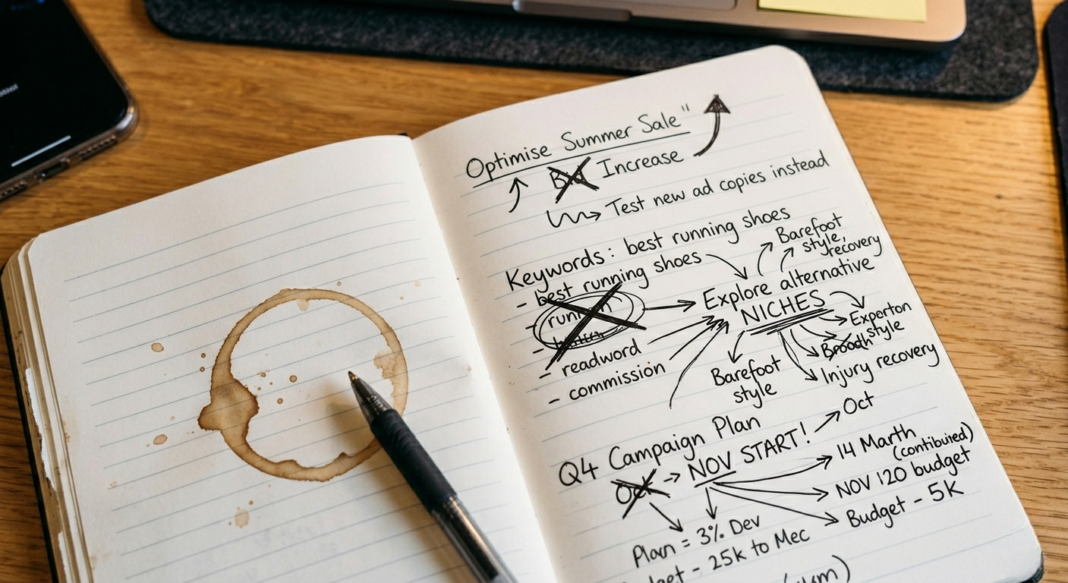 Optimise Summer Sale"
Increase
Test new ad copies instead
Keywords: best running shoes
- best running shoes
- readword
- commission
Explore alternative
NICHES
Barefoot
style,
recovery
Experton
style
Injury recovery
Barefoot
style
Q4 Campaign Plan
Oct → NOV START! Oct
14 Marth
(contibuied)
NOV 120 budget
Budget - 5K
Plan = 3% Dev
- 25k to Mec